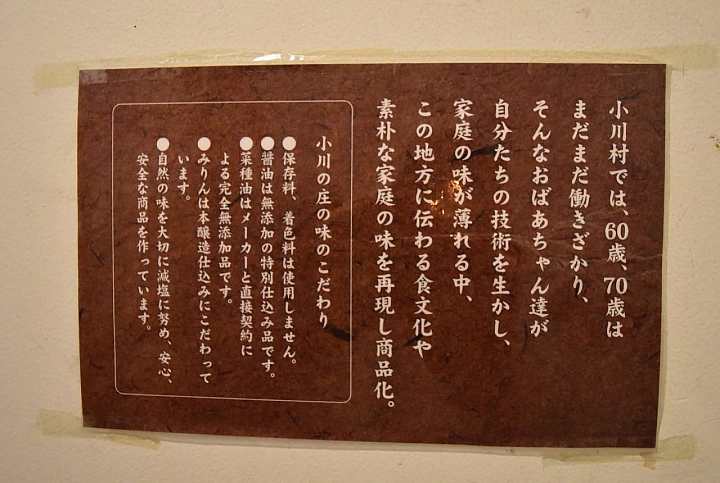 小川村では、60歳、70歳は
まだまだ働きざかり、
そんなおばあちゃん達が
自分たちの技術を生かし、
家庭の味が薄れる中、
この地方に伝わる食文化や
素朴な家庭の味を再現し商品化。
小川の庄の味のこだわり
●保存料、着色料は使用しません。
●醤油は無添加の特別仕込み品です。
●菜種油はメーカーと直接契約に
よる完全無添加品です。
●みりんは本醸造仕込みにこだわって
います。
●自然の味を大切に減塩に努め、安心、
安全な商品を作っています。